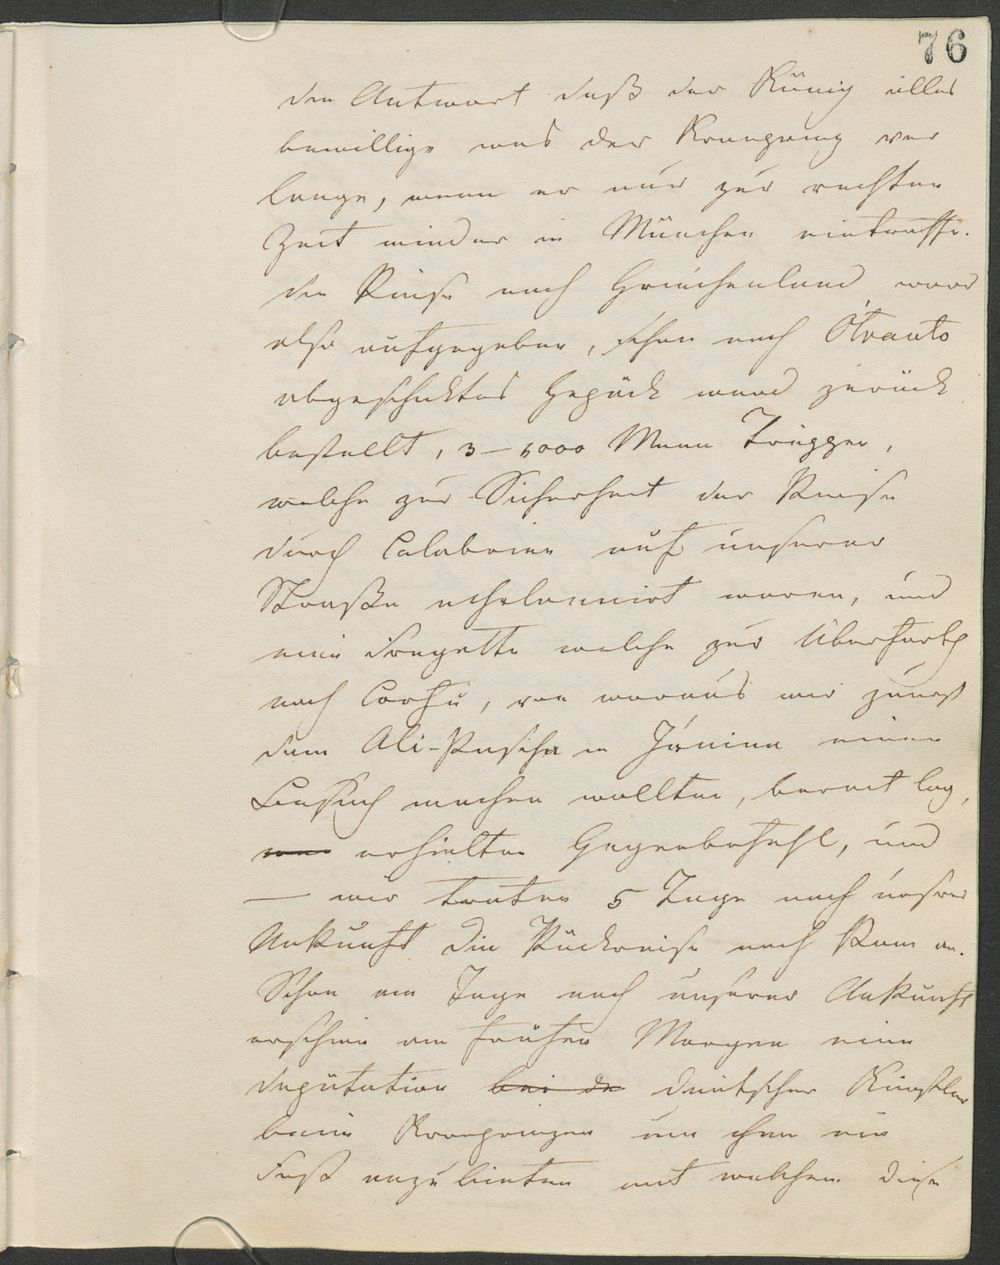 76
die Antwort daß der König alles
bewillige was der Kronprinz ver
lange, wenn er nur zur rechten
Zeit wieder in München eintreffe.
die Reise nach Griechenland ward
also aufgegeben, schon nach Otranto
abgeschiktes Gepäck ward zurück
bestellt, 3–4000 Mann Truppen,
welche zur Sicherheit der Reise
durch Calabrien auf unserer
Straße echelonnirt waren, und
eine Fregatte welche zur Überfarth
nach Corfu, von woraus wir zuerst
dem Ali-Pascha in Janina einen
Besuch machen wollten, bereit lag,
erhielten Gegenbefehl, und
— wir traten 5 Tage nach unsrer
Ankunft die Rückreise nach Rom an.
Schon am Tage nach unserer Ankunft
erschien am frühen Morgen eine
deputation bei de deutscher Künstler
beim Kronprinzen um ihm ein
Fest anzubieten mit welchem diese